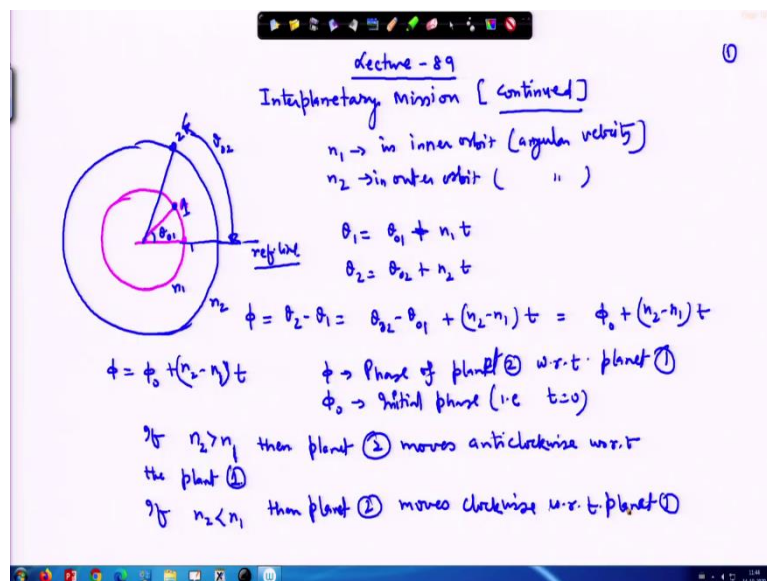 ①
Lecture - 89
Interplanetary Mission [ continued ]
n₁ → in inner orbit (angular velocity)
n₂ → in outer orbit ( " )
2
θ₀₂
1
θ₀₁
ref line
n₁
n₂
θ₁ = θ₀₁ + n₁ t
θ₂ = θ₀₂ + n₂ t
ϕ = θ₂ - θ₁ = θ₀₂ - θ₀₁ + (n₂-n₁) t = ϕ₀ + (n₂-n₁) t
ϕ = ϕ₀ + (n₂-n₁) t
ϕ → Phase of planet ② w.r.t. planet ①
ϕ₀ → initial phase (i.e t=0)
If n₂>n₁ then planet ② moves anticlockwise w.r.t
the plant ①
If n₂<n₁ then planet ② moves clockwise w.r.t. planet ①